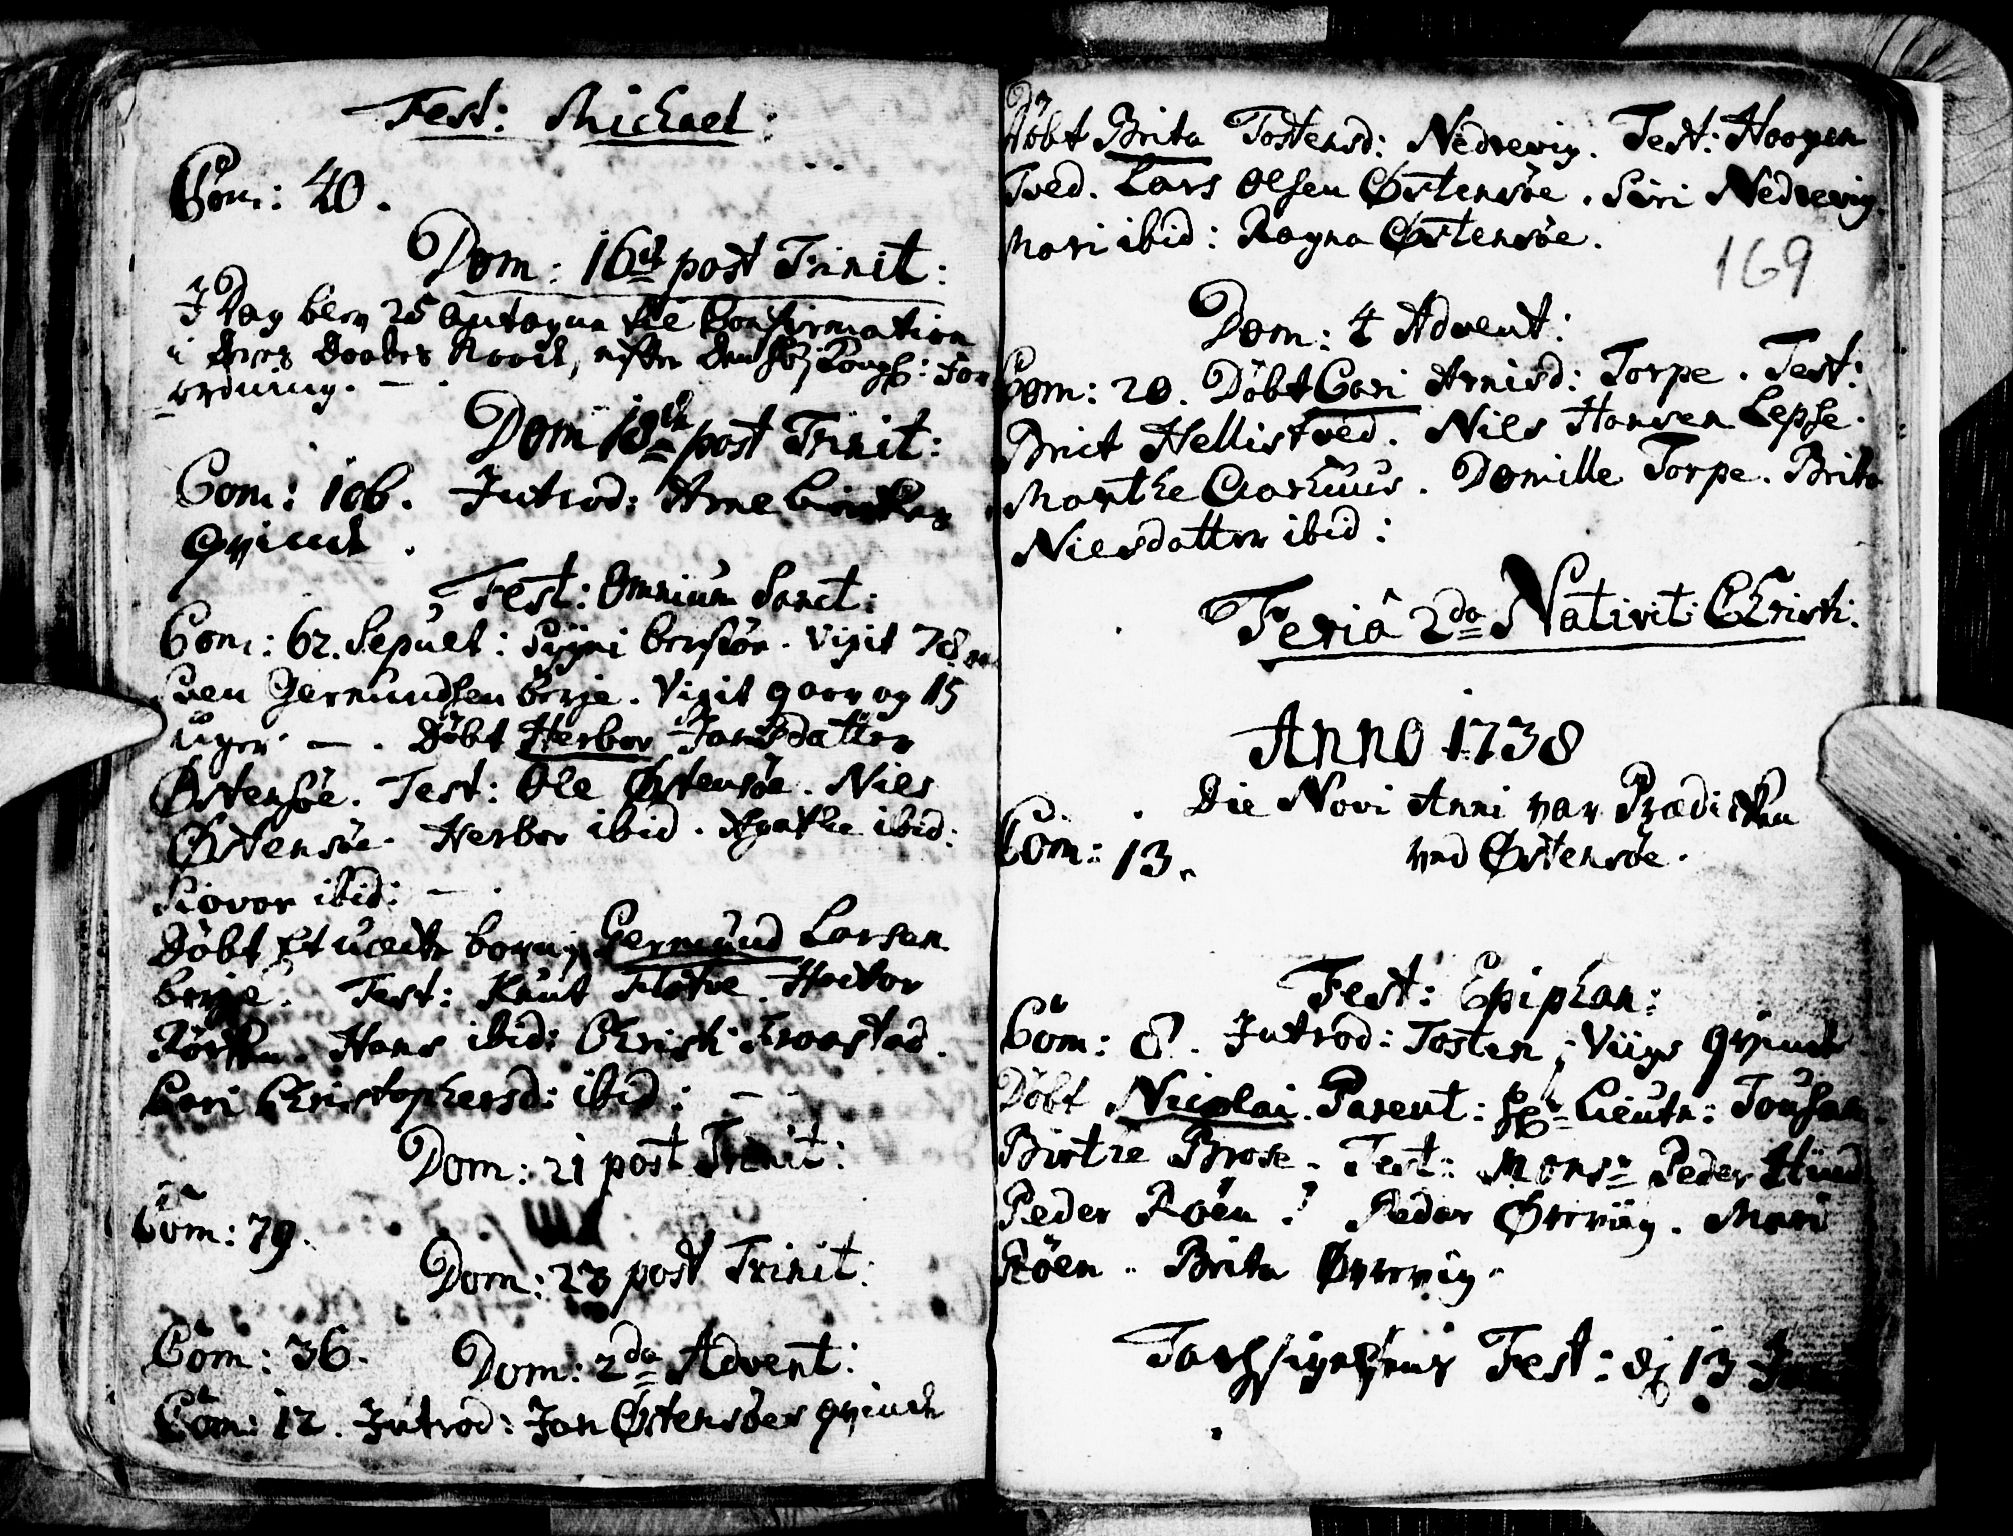 Fest: Michael:
Com: 40.
Dom: 16 post Trinit:
I Dag blev 25 antagne til Confirmation
i deres Daabes Naade, efter den Kongl: For
ordning. —
Dom 18 post Trinit:
Com: 106. Introd: Arne
Qvinde.
Fest: Omnium Sanct:
Com: 62. Sepult: Vixit 78
Sven Germundsen Berje. Vixit 9 aar og 15
Uger — . Döbt Herbor Jansdatter
Østensöe. Test: Ole Østensöe. Niels
Østensöe. Herbor ibid. Agathe ibid:
Siovor ibid: —
Döbt Et uægte barn, Germund Larsen
Berje. Test: Knut Flotve. Hactor
Hans ibid: Christi Froastad.
Kari Christophersd: ibid: —
Dom: 21 post Trinit:
Com: 79.
Dom: 23 post Trinit:
Com: 36.
Dom: 2da Advent:
Com: 12. Introd: Jan Østensöes qvinde
Döbt Brita Tostensd: Nedrevig. Test: Haagen
Tved. Lars Olsen Østensöe. Siri Nedrevig
Mari ibid: Ragna Østensöe.
169
Dom: 4 Advent:
Com: 20. Döbt Gari Arnisd: Torpe. Test:
Brict Hellistved. Niels Hansen Lepse.
Marthe Aarhuus. Domille Torpe. Brita
Nielsdatter ibid:
Feriâ 2da Nativit: Christi:
Anno 1738
Die Novi Anni var Prædicken
Com: 13.
ved Østensöe.
Fest: Epiphan:
Com: 8. Introd: Tosten Viigs qvinde
Döbt Nicolai. Parent: Hr Lieutn: Tousen
Birthe Brose. Test: Monsr Peder Hund
Peder Röen. Peder Øvreviig. Mari
Röen. Brita Øvrevig.
Tachsigelsens Fest: d. 13 Jan